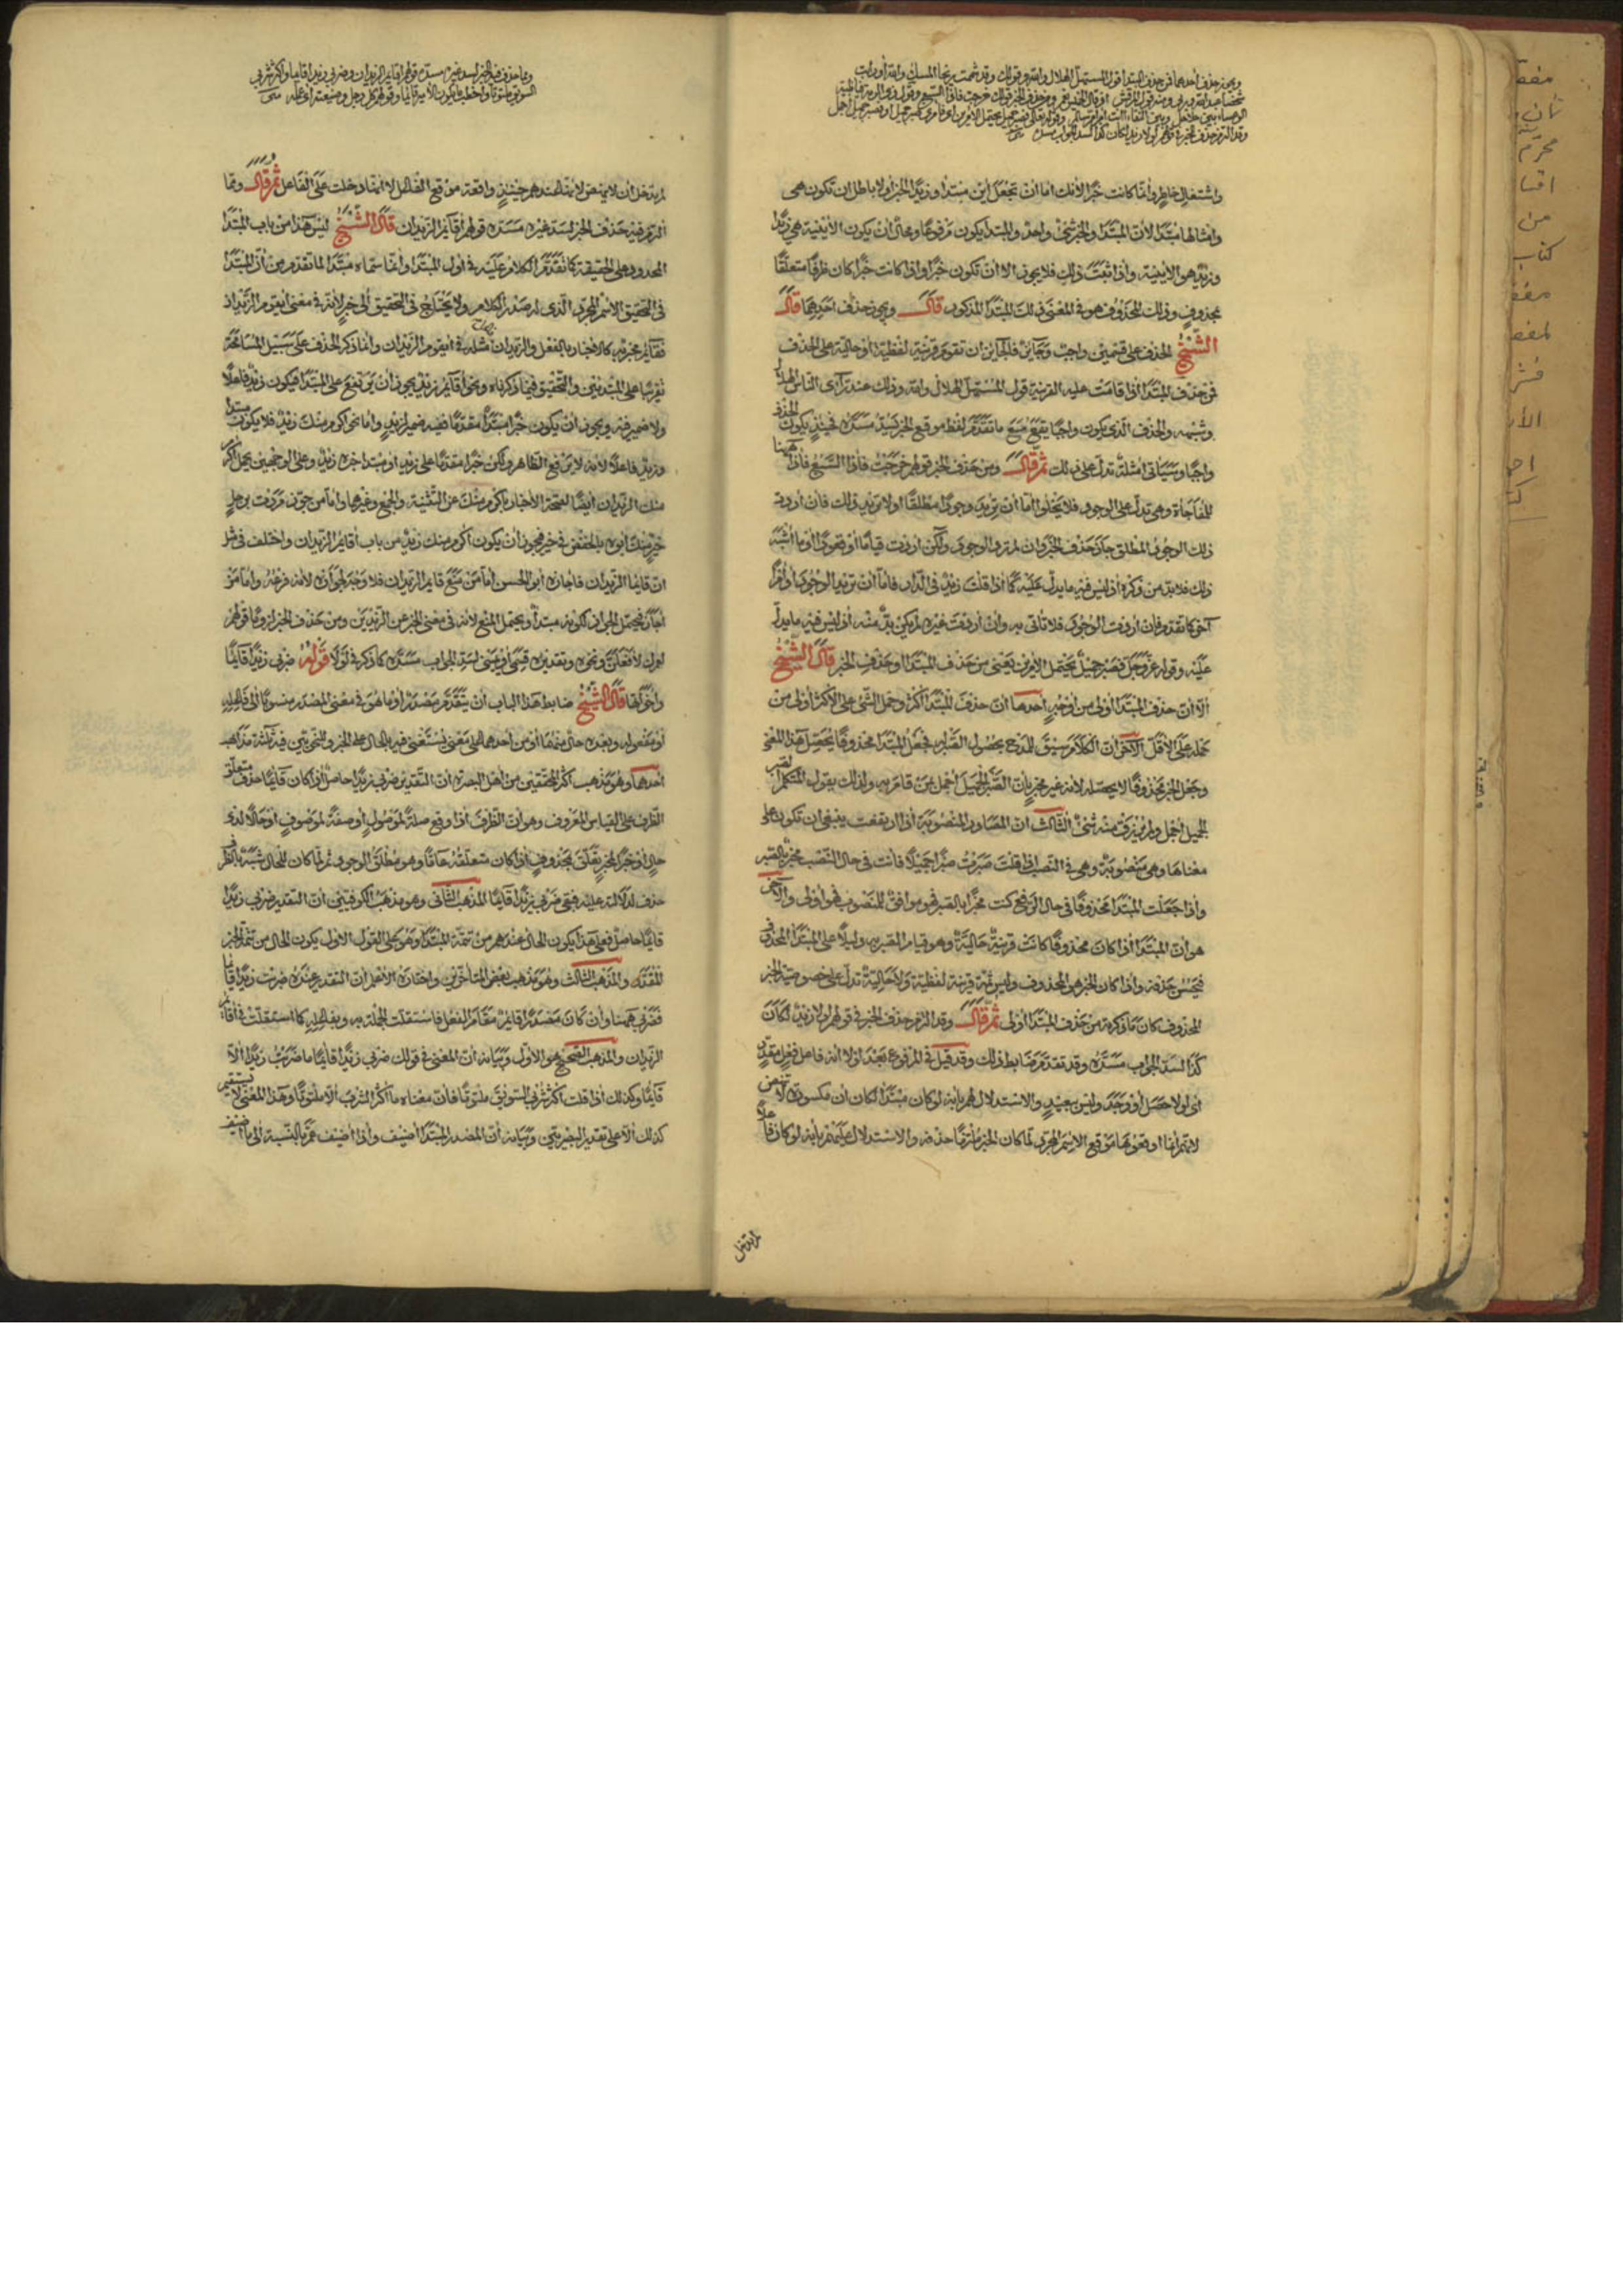 ويجوز حذف أحدهما فمن حذف المبتدأ قول المستهل الهلال والله وقولك وقد شممت ريحا المسك والله أو رأيت
شخصا عبد الله وربي ومنه قول المرقش إذ قال الخميس نعم ومن حذف الخبر قولك خرجت فإذا السبع وقول ذي الرمة فيا ظبية
الوعساء بين جلاجل وبين النقا أأنت أم أم سالم وقوله تعالى فصبر جميل يحتمل الأمرين أي فأمري صبر جميل أو فصبر جميل أجمل
وقد التزم حذف الخبر في قولهم لولا زيد لكان كذا لسد الجواب مسده
واشتغال خاطر وانما كانت خبرا لأنك اما ان تجعل أين مبتدأ وزيدا الخبر أولا باطل ان تكون هي
وامثالها مبتدأ لأن المبتدأ والخبر شيء واحد والمبتدأ يكون مرفوعا ومحال أن يكون الأينية هي زيد
وزيد هو الأينية واذا ثبت ذلك فلا يجوز الا ان تكون خبرا واذا كانت خبرا كان ظرفا متعلقا
بمحذوف وذلك المحذوف هو في المعنى ذلك المبتدأ المذكور قال ويجوز حذف احدهما قال
الشيخ الحذف على قسمين واجب وجائز فالجائز ان تقوم قرينة لفظية أو حالية على الحذف
فمن حذف المبتدأ اذا قامت عليه القرينة قول المستهل الهلال والله وذلك عند ترآى الناس الهلال
وشبهه والحذف الذي يكون واجبا يقع مع ما تقدم لفظ موقع الخبر يسد مسده فحينئذ يكون الحذف
واجبا وسيأتي امثلة تدل على ذلك ثم قال ومن حذف الخبر قولهم خرجت فاذا السبع فاذا ههنا
للمفاجأة وهي تدل على الوجود فلا يخلوا اما ان تريد وجودا مطلقا اولا تريد ذلك فان أردت
ذلك الوجود المطلق جاز حذف الخبر وان لم ترد الوجود ولكن اردت قياما أو قعودا أو ما اشبه
ذلك فلابد من ذكره اذ ليس فيه ما يدل عليه كما اذا قلت زيد في الدار فاما ان تريد الوجود أو امرا
آخر كما تقدم فان اردت الوجود فلا تأتي به وان اردت غيره لم يكن بد منه اذ ليس فيه ما يدل
عليه وقوله عز وجل فصبر جميل يحتمل الأمرين يعني من حذف المبتدأ وحذف الخبر قال الشيخ
الا ان حذف المبتدأ أولى من أوجه احدها ان حذف المبتدأ اكثر وحمل الشيء على الأكثر أولى من
حمله على الأقل الآخر ان الكلام سيق للمدح بحصول الصبر له فجعل المبتدأ محذوفا يحصل هذا المعنى
وجعل الخبر محذوفا لا يحصله لأنه غير مخبر بأن الصبر الجميل اجمل ممن قام به ولذلك يقول المتكلم الصبر
الجميل اجمل ولم يرزق منه شيء الثالث ان المصادر المنصوبة اذا ارتفعت ينبغي ان تكون على
معناها وهي منصوبة وهي في النصب اذا قلت صبرت صبرا جميلا فانت في حال النصب مخبر بالصبر
واذا جعلت المبتدأ محذوفا في حال الرفع كنت مخبرا بالصبر فهو موافق للمنصوب فهو أولى والآخر
هو ان المبتدأ اذا كان محذوفا كانت قرينة حالية وهو قيام الصبر به دليلا على المبتدأ المحذوف
فحسن حذفه واذا كان الخبر هو المحذوف وليس ثمة قرينة لفظية ولا حالية تدل على خصوصية الخبر
المحذوف كان ما ذكره من حذف المبتدأ اولى ثم قال وقد التزم حذف الخبر في قولهم لولا زيد لكان
كذا لسد الجواب مسده وقد تقدم ضابط ذلك وقد قيل في المرفوع بعد لولا انه فاعل فعل مقدر
اي لولا حصل أو وجد وليس ببعيد والاستدلال لهم بأنه لو كان مبتدأ لكان ان مكسورة لا ينهض
لأنهم انما اوقعوها موقع الاسم المجرد لما كان الخبر ملتزما حذفه والاستدلال عليهم بأنه لو كان فاعلا
لم تدخل
ومما حذف فيه الخبر لسد غيره مسده قولهم أقائم الزيدان وضربي زيدا قائما وأكثر شربي
السويق ملتوتا وأخطب ما يكون الأمير قائما وقولهم كل رجل وضيعته
لم تدخل ان لا ينهض لأنها عندهم حينئذ واقعة موقع الفعل لا أنها دخلت على الفاعل ثم قال ومما
التزم فيه حذف الخبر لسد غيره مسده قولهم أقائم الزيدان قال الشيخ ليس هذا من باب المبتدأ
المحدود على الحقيقة كما تقدم الكلام عليه في أول المبتدأ وانما سماه مبتدأ لما تقدم من أن المبتدأ
في التحقيق الاسم المجرد الذي له صدر الكلام ولا يحتاج في التحقيق الى خبر لأنه في معنى أيقوم الزيدان
فقائم مخبر به كالإخبار بالفعل والزيدان مثله في أيقوم الزيدان وانما ذكر الحذف على سبيل المسامحة
تقريبا على المبتدئين والتحقيق فيما ذكرناه ونحو أقائم زيد يجوز أن يرتفع على المبتدأ فيكون زيد فاعلا
ولا ضمير فيه ويجوز ان يكون خبرا مبتدأ مقدما ففيه ضمير لزيد واما نحو اكرم منك زيد فلا يكون مبتدأ
وزيد فاعلا لأنه لا يرفع الظاهر ولكن خبرا مقدما على زيد أو مبتدأ خبره زيد وعلى الوجهين يحمل اكرم
منك الزيدان أيضا لصحة الإخبار بأكرم منك عن التثنية والجمع وغيرها واما من جوز مررت برجل
خير منك أبوه بالخفض في خير فيجوز أن يكون أكرم منك زيد من باب أقائم الزيدان واختلف في مثل
ان قائما الزيدان فاجازه أبو الحسن اما من منع قائم الزيدان فلا وجه لجوازه لأنه فرعه واما من
اجازه فيحتمل الجواز لكونه مبتدأ ويحتمل المنع لأنه في معنى الخبر عن الزيدين ومن حذف الخبر لزوما قولهم
لعمرك لأفعلن ونحوه وتقديره قسمي أو يميني لسد الجواب مسده كما ذكر في لولا قوله ضربي زيدا قائما
وأخواتها قال الشيخ ضابط هذا الباب أن يتقدم مصدر أو ما هو في معنى المصدر منسوبا الى فاعله
أو مفعوله وبعده حال منهما أو من أحدهما على معنى يستغنى فيه بالحال عن الخبر وللنحويين فيه ثلثة مذاهب
احدها وهو مذهب أكثر المحققين من اهل البصرة ان التقدير ضربي زيدا حاصل اذا كان قائما حذف متعلق
الظرف على القياس المعروف وهو ان الظرف اذا وقع صلة لموصول أو صفة لموصوف أو حالا لذي
حال أو خبرا لمخبر تعلق بمحذوف اذا كان متعلقه عاما وهو مطلق الوجود ثم لما كان للحال شبه بالظرف
حذف لدلالته عليه فبقي ضربي زيدا قائما المذهب الثاني وهو مذهب الكوفيين ان التقدير ضربي زيدا
قائما حاصل فعلى هذا يكون الحال عندهم من تتمة المبتدأ وهو على القول الأول يكون الحال من تتمة الخبر
المقدر والمذهب الثالث وهو مذهب بعض المتأخرين واختاره الأعلم ان التقدير عنده ضربت زيدا قائما
فضربي ههنا وان كان مصدرا قائم مقام الفعل فاستقلت الجملة به وبفاعله كما استقلت في أقائم
الزيدان والمذهب الصحيح هو الأول وبيانه ان المعنى في قولك ضربي زيدا قائما ما ضربت زيدا الا
قائما وكذلك اذا قلت أكثر شربي السويق ملتوتا فان معناه ما أكثر الشرب الا ملتوتا وهذا المعنى لا يستقيم
كذلك الا على تقدير البصريين وبيانه أن المصدر المبتدأ أضيف واذا أضيف عم بالنسبة الى ما أضيف